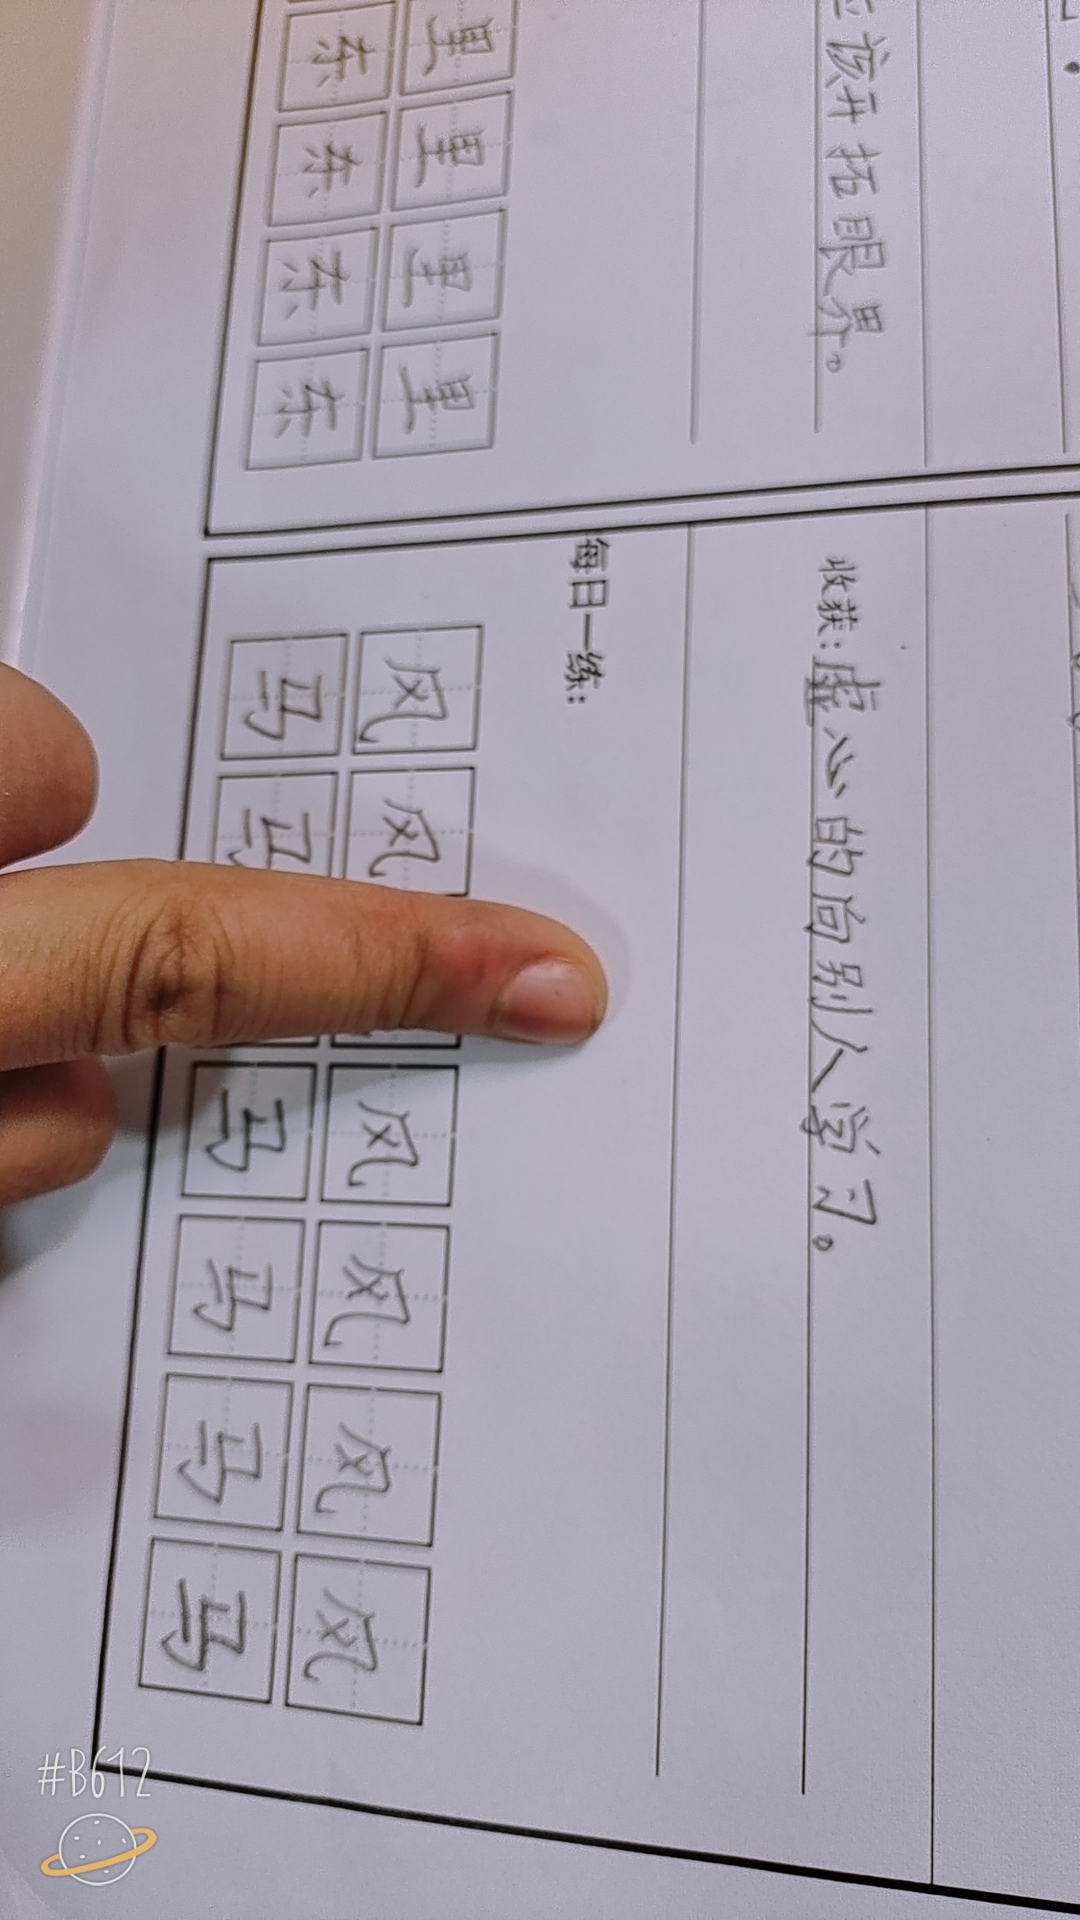 该开拓眼界。
里里里里
东东东东
收获:虚心的向别人学习。
每日一练:
风风风风风风
马马马马马马
#B612